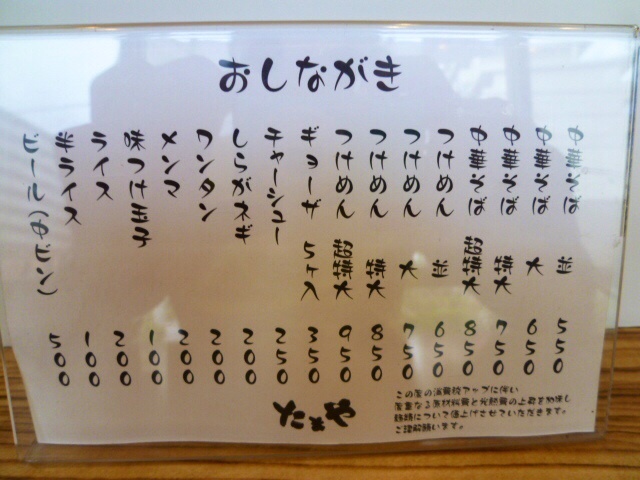 おしながき
中華そば 並 550
中華そば 大 650
中華そば 特大 750
中華そば 超特大 850
つけめん 並 650
つけめん 大 750
つけめん 特大 850
つけめん 超特大 950
ギョーザ 5ヶ入 350
チャーシュー 250
しらがネギ 200
ワンタン 200
メンマ 200
味つけ玉子 100
ライス 200
半ライス 100
ビール(中ビン) 500
この度の消費税アップに伴い
度重なる原材料費と光熱費の上昇を加味し
について値上げさせていただきます。
ご理解願います。